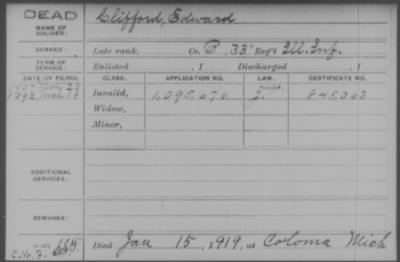 DEAD
NAME OF SOLDIER: Clifford, Edward
SERVICE: Late rank, Co. B 33" Reg't Ill. Inf.
TERM OF SERVICE: Enlisted , 1 Discharged , 1
DATE OF FILING. CLASS. APPLICATION NO. LAW. CERTIFICATE NO.
1892 Invalid, 1,095,676 845,363
Widow,
Minor,
ADDITIONAL SERVICES:
REMARKS:
Died Jan 15, 1919, at Coloma Mich